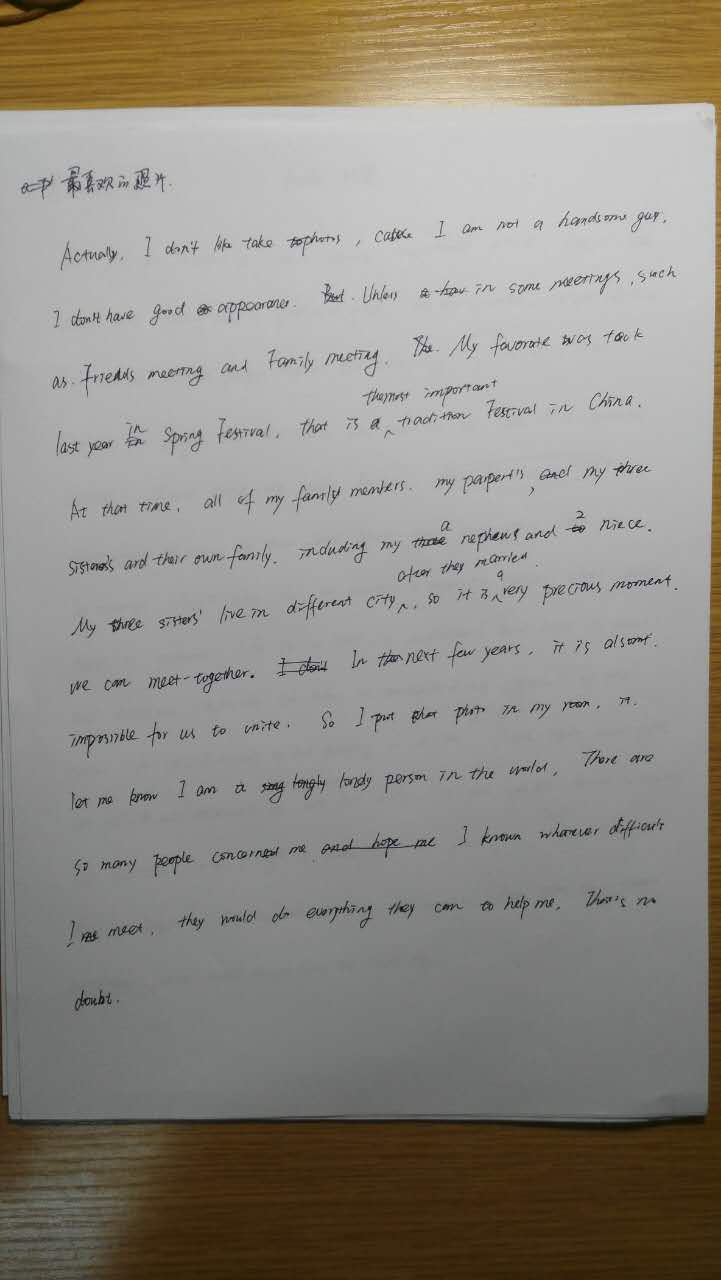 最喜欢的照片.
Actually, I don't like take photos, cause I am not a handsome guy.
I don't have good appearance. Unless in some meetings, such
as. Friends meeting and Family meeting. My favorate was took
last year in Spring Festival, that is the most important tradition Festival in China.
At that time, all of my family members. my parpert's, and my three
sisters's and their own family. including my a nephews and 2 niece.
My three sisters' live in different city after they married. so it is a very precious moment.
we can meet-together. In next few years, it is alsomt.
impossible for us to unite. So I put that photo in my room, it.
let me know I am a londy person in the world, There are
so many people concerned me I known whatever difficult
I meet, they would do everything they can to help me. There's no
doubt.